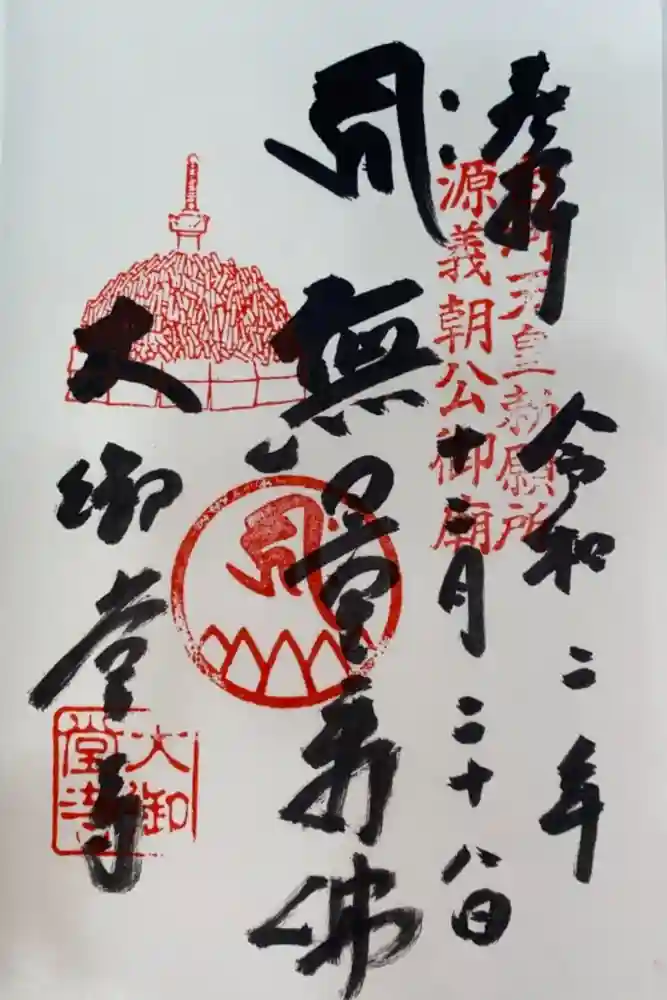 奉拝
令和二年
白河天皇勅願所
源義朝公御廟
十二月二十八日
𑖮𑖿𑖨𑖱𑖾
無量壽佛
𑖮𑖿𑖨𑖱𑖾
大御堂寺
大御堂